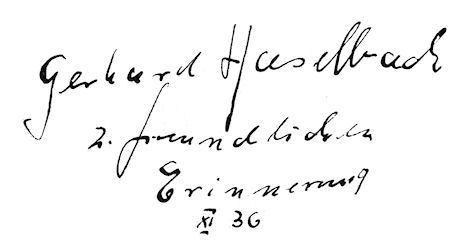 Gerhard Haselbach
z. freundlichen
Erinnerung
XI 36